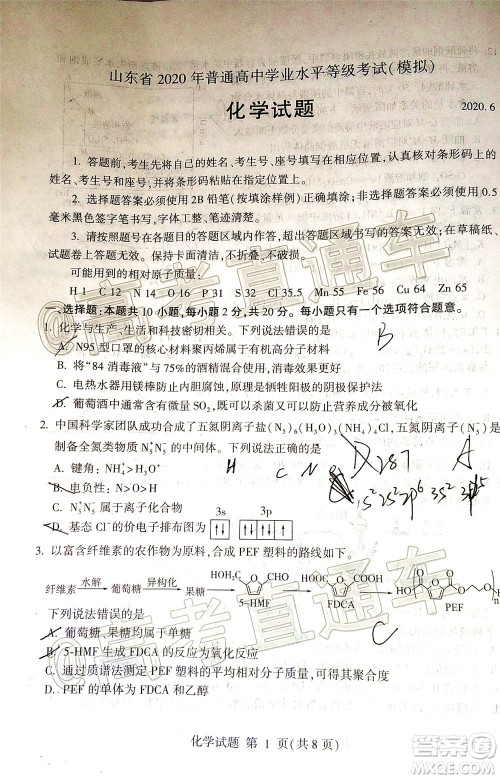 山东省2020年普通高中学业水平等级考试(模拟)
化学试题
2020.6
1. 答题前,考生先将自己的姓名、考生号、座号填写在相应位置,认真核对条形码上的姓名、考生号和座号,并将条形码粘贴在指定位置上。
2. 选择题答案必须使用2B铅笔(按填涂样例)正确填涂;非选择题答案必须使用0.5毫米黑色签字笔书写,字体工整、笔迹清楚。
3. 请按照题号在各题目的答题区域内作答,超出答题区域书写的答案无效;在草稿纸、试题卷上答题无效。保持卡面清洁,不折叠、不破损。
可能用到的相对原子质量:
H 1 C 12 N 14 O 16 S 32 Cl 35.5 Mn 55 Fe 56 Cu 64 Zn 65
一、选择题:本题共10小题,每小题2分,共20分。每小题只有一个选项符合题意。
1. 化学与生产、生活和科技密切相关。下列说法错误的是
A. N95型口罩的核心材料聚丙烯属于有机高分子材料
B. 将“84消毒液”与75%的酒精混合使用,消毒效果更好
C. 电热水器用镁棒防止内胆腐蚀,原理是牺牲阳极的阴极保护法
D. 葡萄酒中通常含有微量SO₂,既可以杀菌又可以防止营养成分被氧化
2. 中国科学家团队成功合成了五氮阴离子盐(N₅)₆(H₃O)₃(NH₄)₄Cl,五氮阴离子(N₅⁻)是制备全氮类物质N₅⁺N₅⁻的中间体。下列说法正确的是
A. 键角:NH₄⁺>H₃O⁺
B. 电负性:N>O>H
C. N₅⁺N₅⁻属于离子化合物
3s 3p
D. 基态Cl⁻的价电子排布图为
3. 以富含纤维素的农作物为原料,合成PEF塑料的路线如下。
纤维素 水解 葡萄糖 异构化 果糖
5-HMF FDCA PEF
下列说法错误的是
A. 葡萄糖、果糖均属于单糖
B. 5-HMF生成FDCA的反应为氧化反应
C. 通过质谱法测定PEF塑料的平均相对分子质量,可得其聚合度
D. PEF的单体为FDCA和乙醇
C
化学试题 第1页(共8页)
@高考直通车
@高考直通车